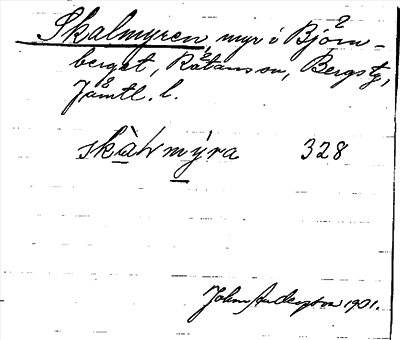 Skalmyren, myr i Björn-
berget, Rätansson, Bergs tg,
Jämtl. l.
skàlvmýra 328
John Andersson 1901.